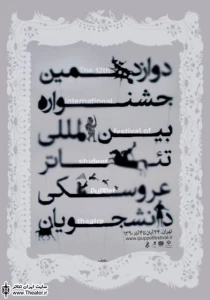 دوازدهمین
The 12th
جشنواره
International
بین المللی
festival of
تئاتر
student
عروسکی
Puppet
دانشجویان
theatre
سایت ایران تئاتر
www.Theater.ir